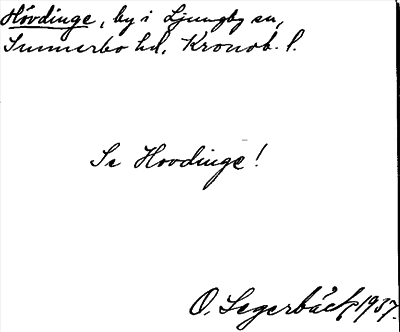 Hövdinge, by i Ljungby sn,
Sunnerbo hd, Kronob. l.
Se Hovdinge!
O. Segerbäck 1937.